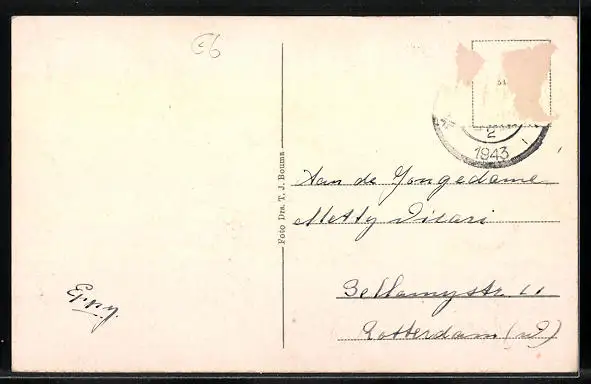 Foto Drs. T. J. Bouma
2
1943
Aan de Jongedame
Metty Visari
Bellamystr. 11
Rotterdam (W)